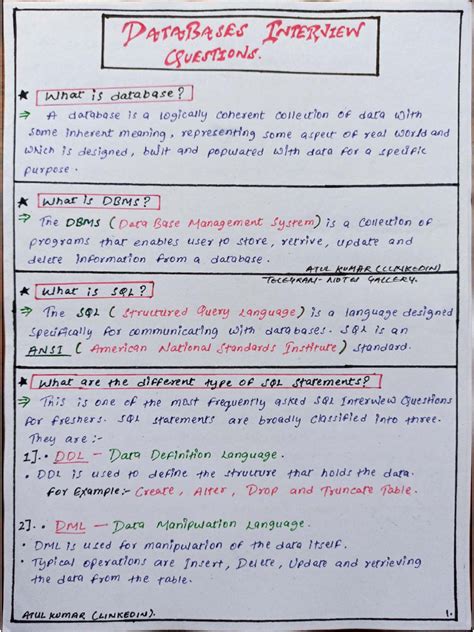 DATABASES INTERVIEW
QUESTIONS.
★ What is database?
⇒ A database is a logically coherent collection of data with
some inherent meaning, representing some aspect of real world and
which is designed, built and populated with data for a specific
purpose.
★ What is DBMS?
⇒ The DBMS (Data Base Management System) is a collection of
programs that enables user to store, retrive, update and
delete information from a database.
ATUL KUMAR (LINKEDIN)
TELEGRAM- NOTES GALLERY.
★ What is SQL?
⇒ The SQL (Structured Query Language) is a language designed
specifically for communicating with databases. SQL is an
ANSI (American National Standards Institute) standard.
★ What are the different type of SQL statements?
⇒ This is one of the most frequently asked SQL Interview Questions
for freshers. SQL statements are broadly classified into three.
They are :-
1].. DDL – Data Definition Language.
• DDL is used to define the structure that holds the data.
For Example:- Create, Alter, Drop and Truncate Table.
2].. DML – Data Manipulation Language.
• DML is used for manipulation of the data itself.
• Typical operations are Insert, Delete, Update and retrieving
the data from the table.
ATUL KUMAR (LINKEDIN).
1.